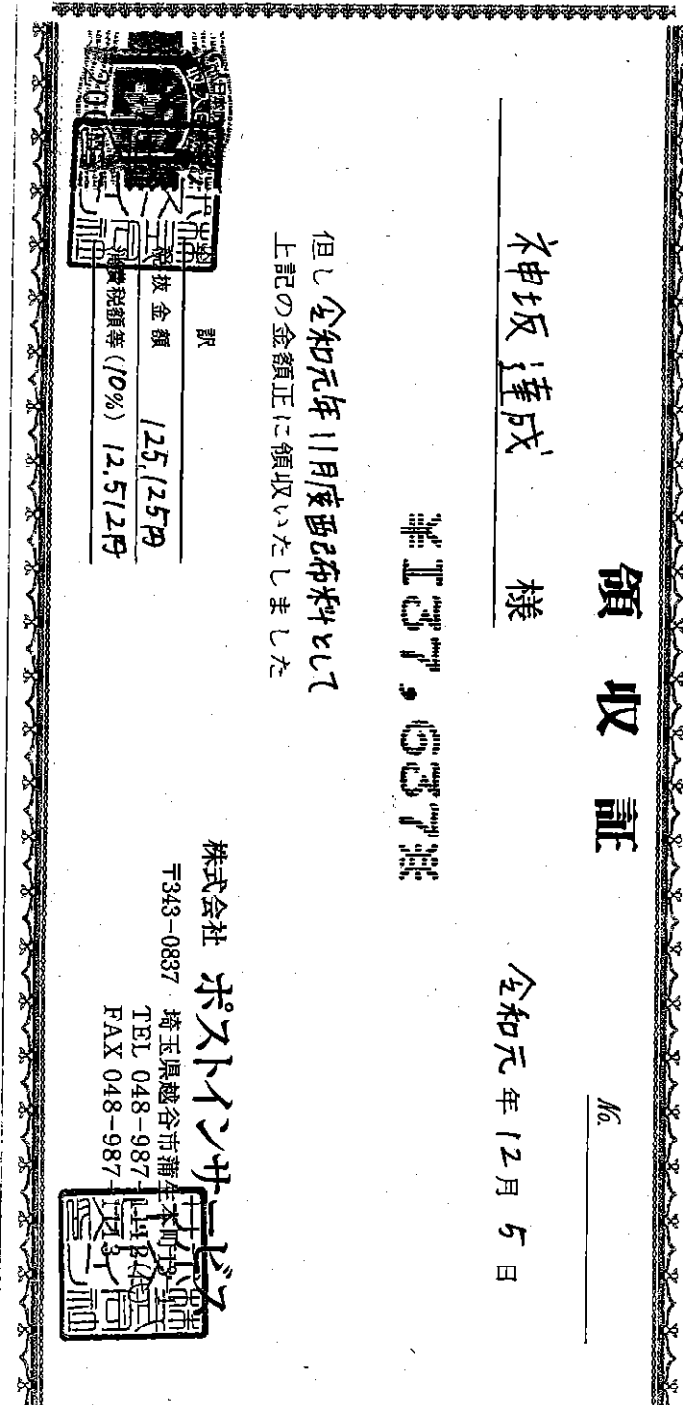 領収証
No.
神坂達成 様
令和元年12月5日
¥137,637※
但し 令和元年11月度配布料として
上記の金額正に領収いたしました
訳
税抜金額 125,125円
消費税額等(10%) 12,512円
株式会社 ポストインサービス
〒343-0837 埼玉県越谷市蒲生本町
TEL 048-987-
FAX 048-987-
200